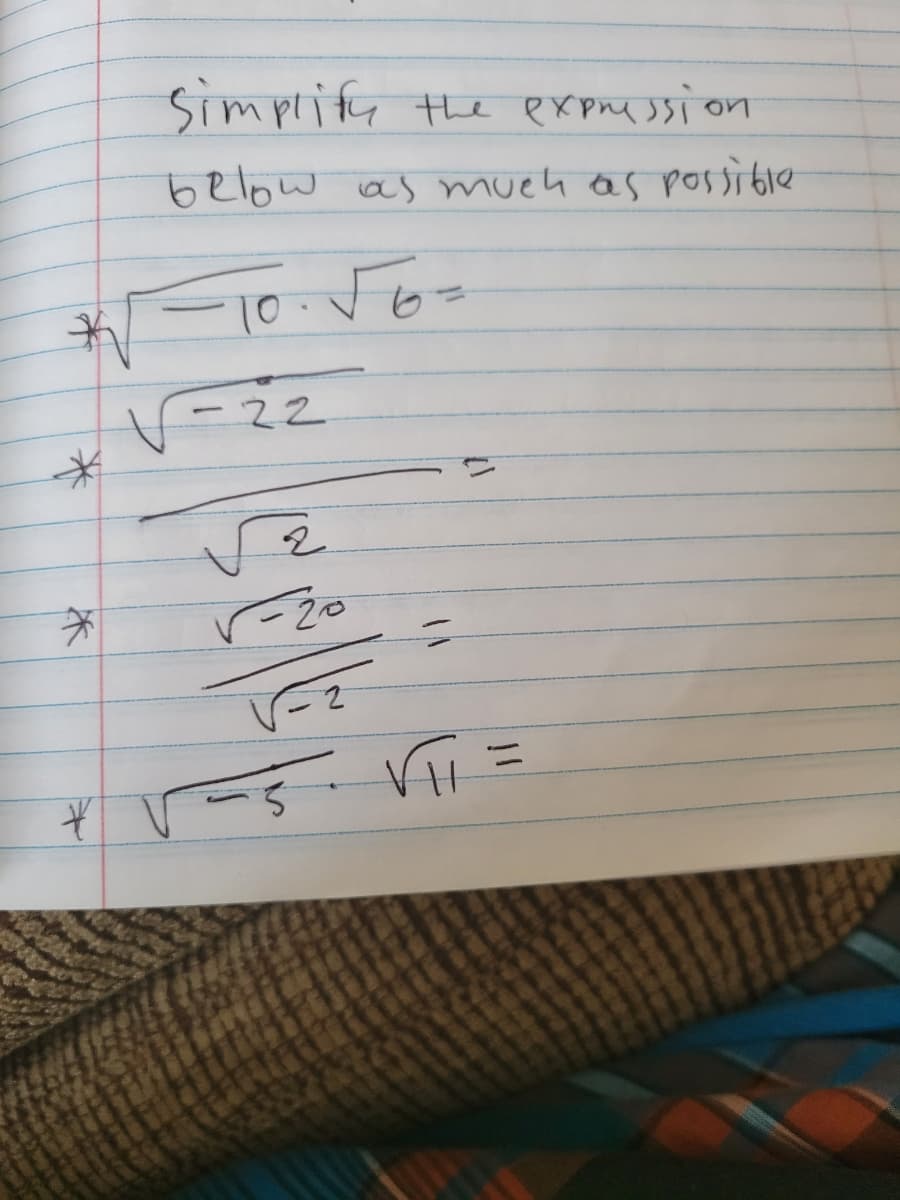 Simplify the expression
below as much as possible
* √-10 · √6 =
* √-22
=
√2
* √-20
=
√-2
* √-5 · √11 =